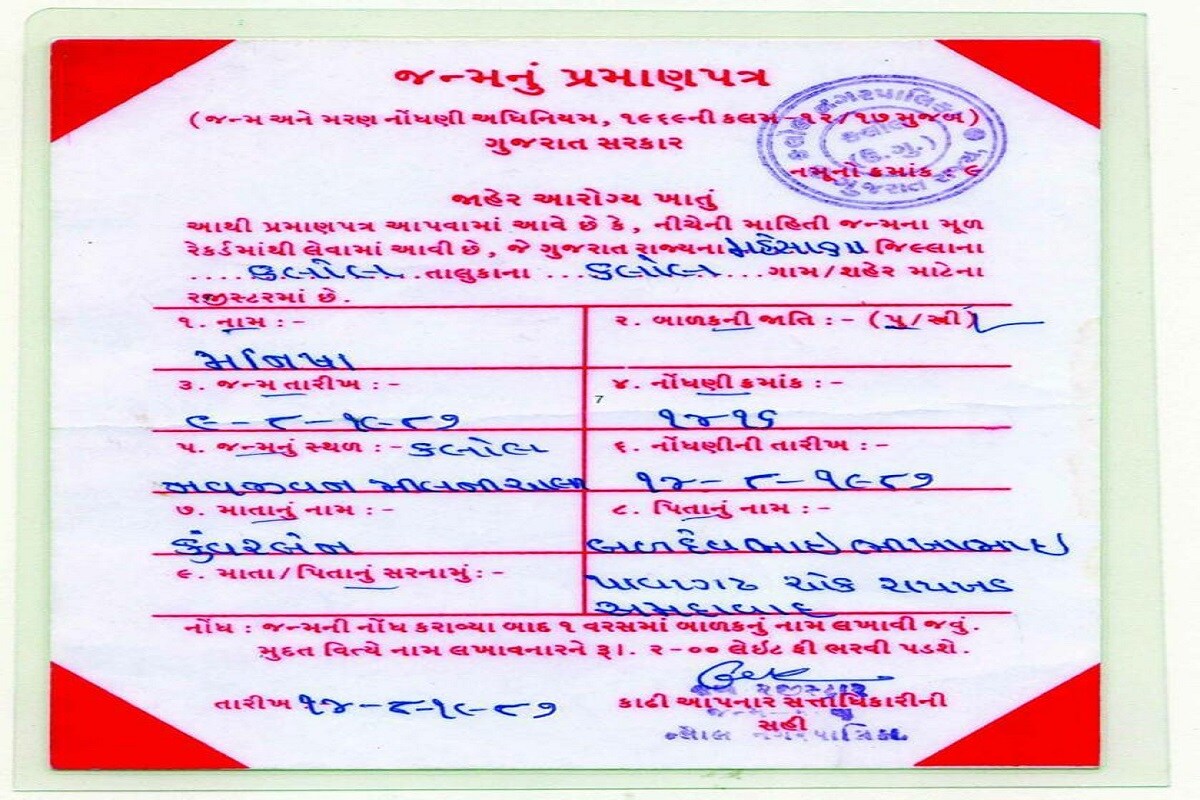 જન્મનું પ્રમાણપત્ર
(જન્મ અને મરણ નોંધણી અધિનિયમ, ૧૯૬૯ની કલમ-૧૨/૧૭ મુજબ)
ગુજરાત સરકાર
કલોલ નગરપાલિકા
કલોલ
(ઉ.ગુ.)
ગુજરાત રાજ્ય
નમુનો ક્રમાંક : ૯
જાહેર આરોગ્ય ખાતું
આથી પ્રમાણપત્ર આપવામાં આવે છે કે, નીચેની માહિતી જન્મના મૂળ
રેકર્ડમાંથી લેવામાં આવી છે, જે ગુજરાત રાજ્યના મહેસાણા જિલ્લાના
....કલોલ..તાલુકાના ...કલોલ...ગામ/શહેર માટેના
રજીસ્ટરમાં છે.
૧. નામ :-
૨. બાળકની જાતિ :- (પુ/સ્ત્રી)
મનિષા
૩. જન્મ તારીખ :-
૪. નોંધણી ક્રમાંક :-
7
૯-૮-૧૯૮૭
૧૪૧૬
૫. જન્મનું સ્થળ :- કલોલ
૬. નોંધણીની તારીખ :-
નવજીવન મીલની ચાલી
૧૪-૮-૧૯૮૭
૭. માતાનું નામ :-
૮. પિતાનું નામ :-
કુંવરબેન
બળદેવભાઇ ભીખાભાઇ
૯. માતા/પિતાનું સરનામું :-
પાવાગઢ ચોક રાયખડ
અમદાવાદ
નોંધ : જન્મની નોંધ કરાવ્યા બાદ ૧ વરસમાં બાળકનું નામ લખાવી જવું.
મુદત વિત્યે નામ લખાવનારને રૂા. ૨-૦૦ લેઇટ ફી ભરવી પડશે.
તારીખ ૧૪-૮-૧૯૮૭
રજીસ્ટ્રાર
કાઢી આપનાર સત્તાધિકારીની
સહી
નગરપાલિકા